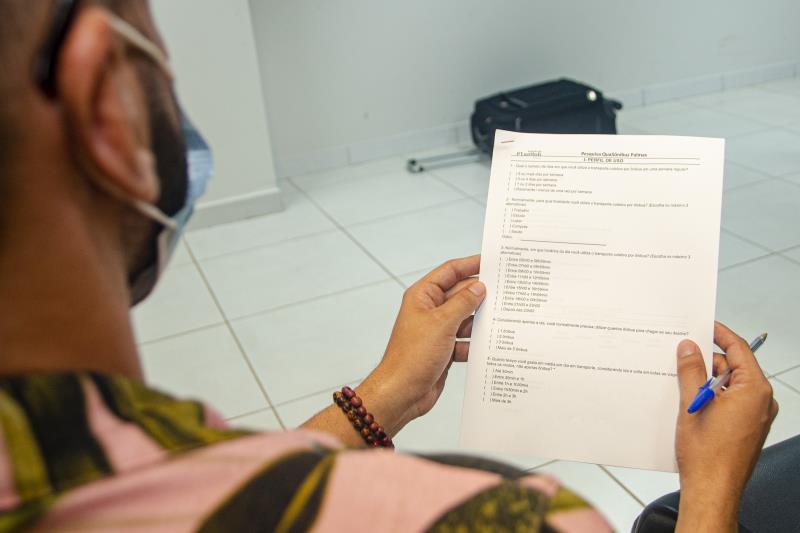 Pesquisa QualiÔnibus Palmas
I. PERFIL DE USO
1 - Qual o número de dias em que você utiliza o transporte coletivo por ônibus em uma semana regular?
( ) 5 ou mais dias por semana
( ) 3 ou 4 dias por semana
( ) 1 ou 2 dias por semana
( ) menos de uma vez por semana
2- Normalmente, para qual finalidade você utiliza o transporte coletivo por ônibus? (Escolha no máximo 3
alternativas)
( ) Trabalho
( ) Estudo
( ) Lazer
( ) Compras
( ) Saúde
3- Normalmente, em que horários do dia você utiliza o transporte coletivo por ônibus? (Escolha no máximo 3
alternativas)
( ) Entre
( ) Entre
( ) Entre
( ) Entre
( ) Entre
( ) Entre
( ) Entre
( ) Entre
( ) Entre
( ) Depois das
4- Considerando apenas a ida, você normalmente precisa utilizar quantos ônibus para chegar ao seu destino?
( ) 1 ônibus
( ) 2 ônibus
( ) 3 ônibus
( ) Mais de 3 ônibus
5- Quanto tempo você gasta em média em um dia em transporte, considerando ida e volta em todas as
todos os modos, não apenas ônibus? *
( ) Até 30min
( ) Entre 30min e 1h
( ) Entre 1h e 1h30min
( ) Entre 1h30min e 2h
( ) Entre 2h e 3h
( ) Mais de 3h